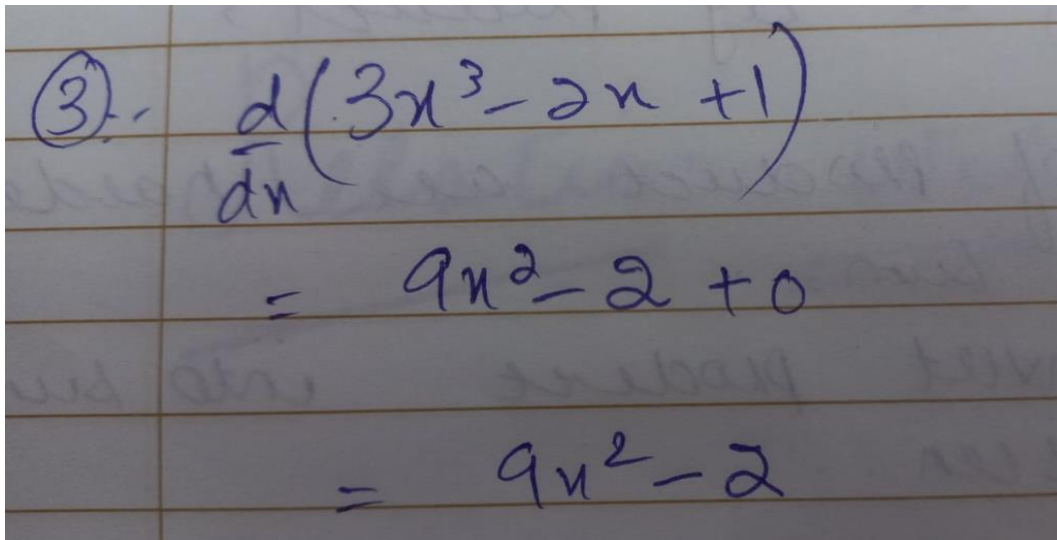 ③.. d/dx (3x³ - 2x + 1)
= 9x² - 2 + 0
= 9x² - 2